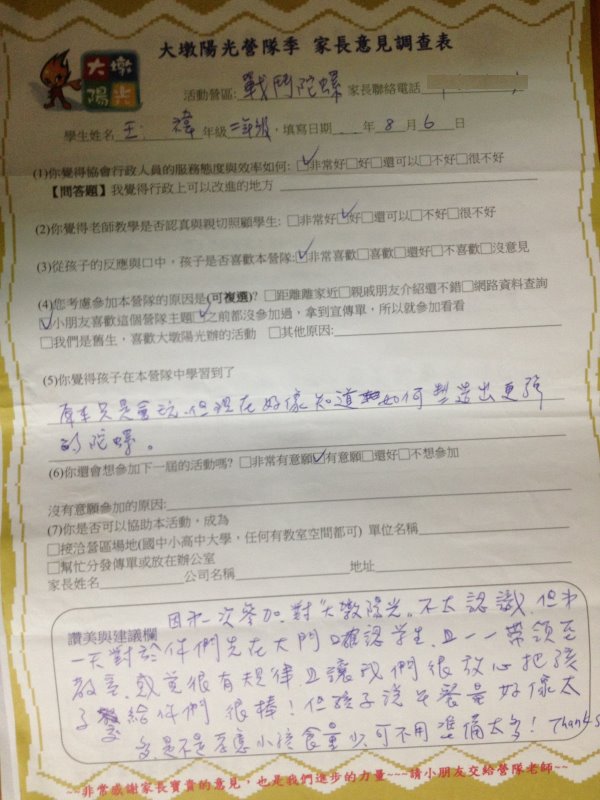 大墩陽光
大墩陽光營隊季 家長意見調查表
活動營區: 戰鬥陀螺 家長聯絡電話
學生姓名 王 禕 年級 二年級, 填寫日期 年 8 月 6 日
(1)你覺得協會行政人員的服務態度與效率如何: ☑非常好□好□還可以□不好□很不好
【問答題】我覺得行政上可以改進的地方
(2)你覺得老師教學是否認真與親切照顧學生: □非常好☑好□還可以□不好□很不好
(3)從孩子的反應與口中, 孩子是否喜歡本營隊: ☑非常喜歡□喜歡□還好□不喜歡□沒意見
(4)您考慮參加本營隊的原因是(可複選)? □距離離家近□親戚朋友介紹還不錯□網路資料查詢
☑小朋友喜歡這個營隊主題☑之前都沒參加過, 拿到宣傳單, 所以就參加看看
□我們是舊生, 喜歡大墩陽光辦的活動 □其他原因:
(5)你覺得孩子在本營隊中學習到了
原本只是會玩、但現在好像知道如何塑造出更強
的陀螺。
(6)你還會想參加下一屆的活動嗎? □非常有意願☑有意願□還好□不想參加
沒有意願參加的原因:
(7)你是否可以協助本活動, 成為
□接洽營區場地(國中小高中大學, 任何有教室空間都可) 單位名稱
□幫忙分發傳單或放在辦公室 地址
家長姓名 公司名稱
讚美與建議欄
因第一次參加, 對"大墩陽光"不太認識, 但第
一天對於你們先在大門口確認學生, 且一一帶領至
教室, 感覺很有規律且讓我們很放心把孩
子交給你們 很棒! 但孩子說午餐量好像太
多, 是不是考慮小孩食量少, 可不用準備太多! Thanks
~~非常感謝家長寶貴的意見, 也是我們進步的力量~~~請小朋友交給營隊老師~~